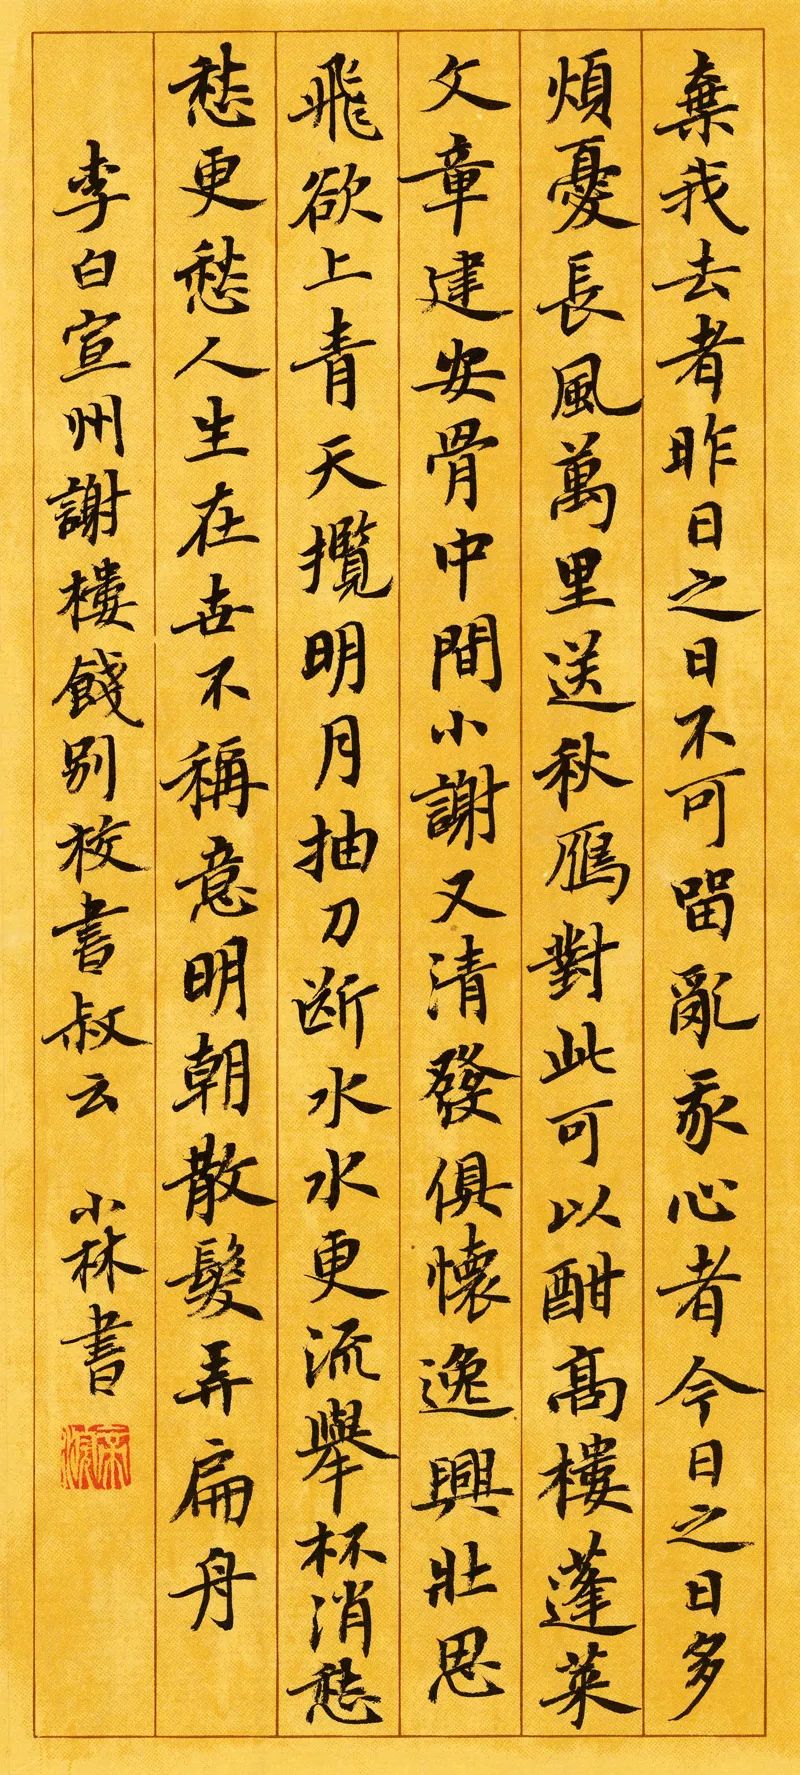 棄我去者昨日之日不可留亂我心者今日之日多
煩憂長風萬里送秋鴈對此可以酣高樓蓬萊
文章建安骨中間小謝又清發俱懷逸興壯思
飛欲上青天攬明月抽刀断水水更流舉杯消愁
愁更愁人生在世不稱意明朝散髮弄扁舟
李白宣州謝樓餞別校書叔云 小林書